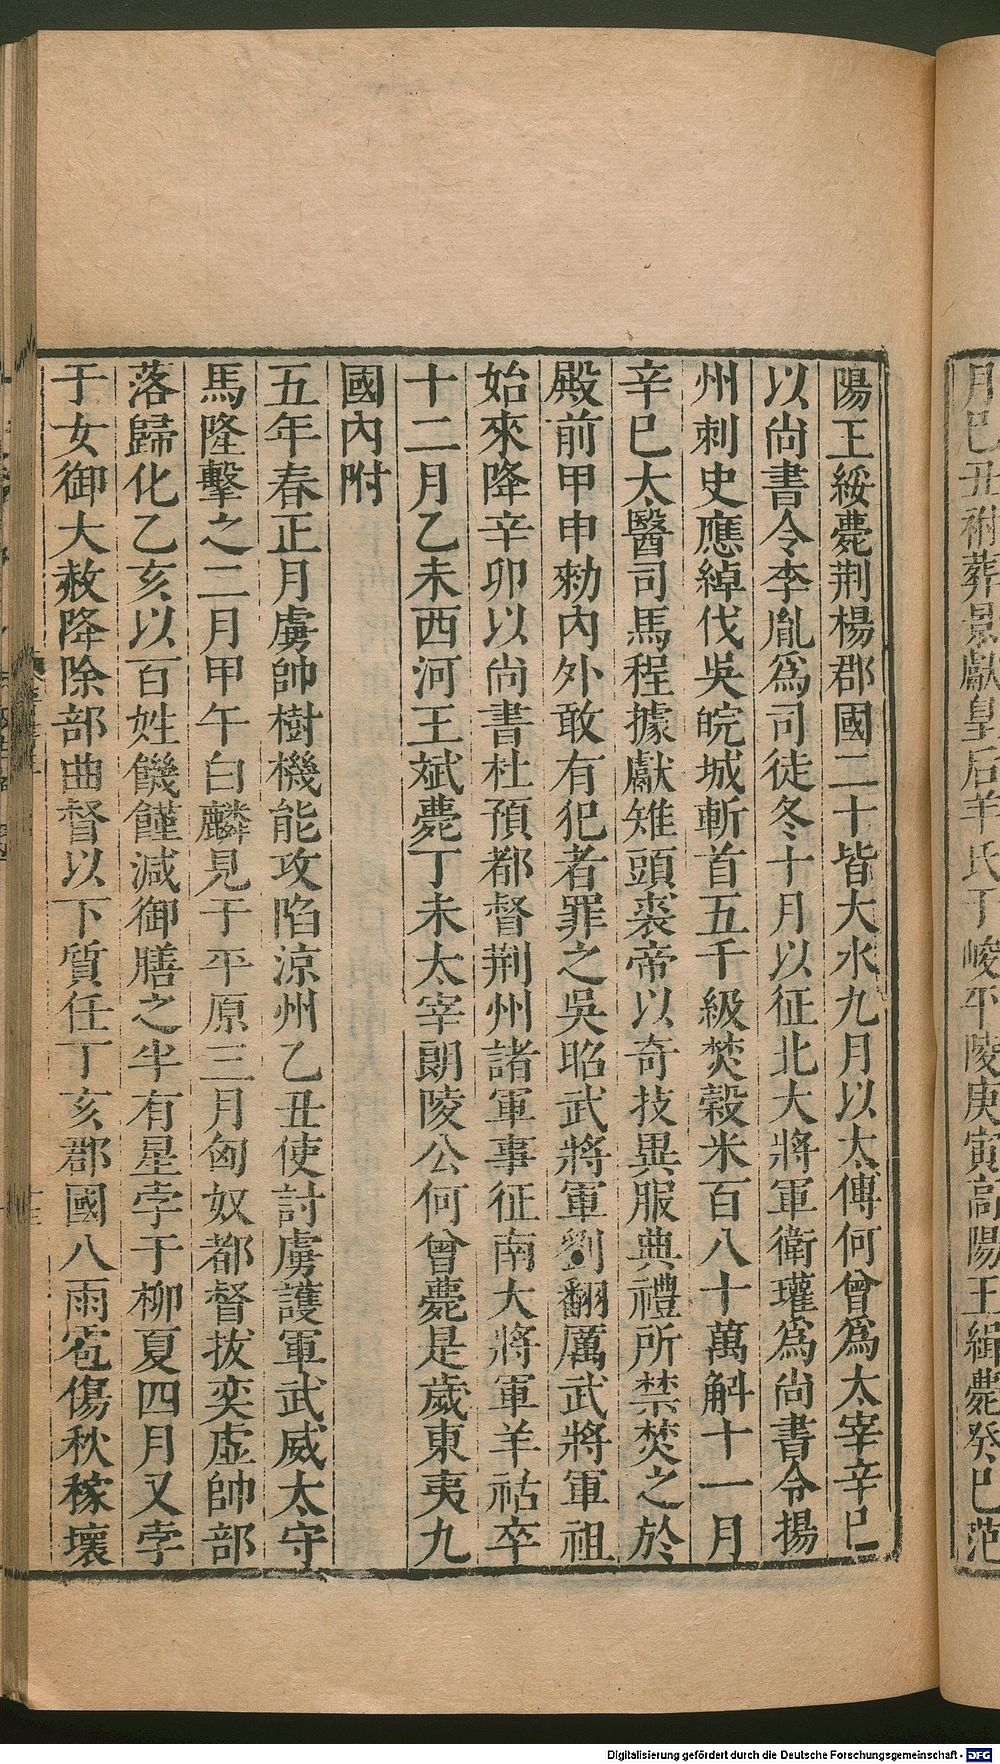 月己丑祔葬景獻皇后羊氏于峻平陵庚寅高陽王緝薨癸巳范
陽王綏薨荆楊郡國二十皆大水九月以太傅何曾爲太宰辛巳
以尚書令李胤爲司徒冬十月以征北大將軍衛瓘爲尚書令揚
州刺史應綽伐吳皖城斬首五千級焚穀米百八十萬斛十一月
辛巳大醫司馬程據獻雉頭裘帝以奇技異服典禮所禁焚之於
殿前甲申勑內外敢有犯者罪之吳昭武將軍劉翻厲武將軍祖
始來降辛卯以尚書杜預都督荆州諸軍事征南大將軍羊祜卒
十二月乙未西河王斌薨丁未太宰朗陵公何曾薨是歲東夷九
國內附
五年春正月虜帥樹機能攻陷涼州乙丑使討虜護軍武威太守
馬隆擊之二月甲午白麟見于平原三月匈奴都督拔奕虛帥部
落歸化乙亥以百姓饑饉減御膳之半有星孛于柳夏四月又孛
于女御大赦降除部曲督以下質任丁亥郡國八雨雹傷秋稼壞
Digitalisierung gefördert durch die Deutsche Forschungsgemeinschaft - DFG